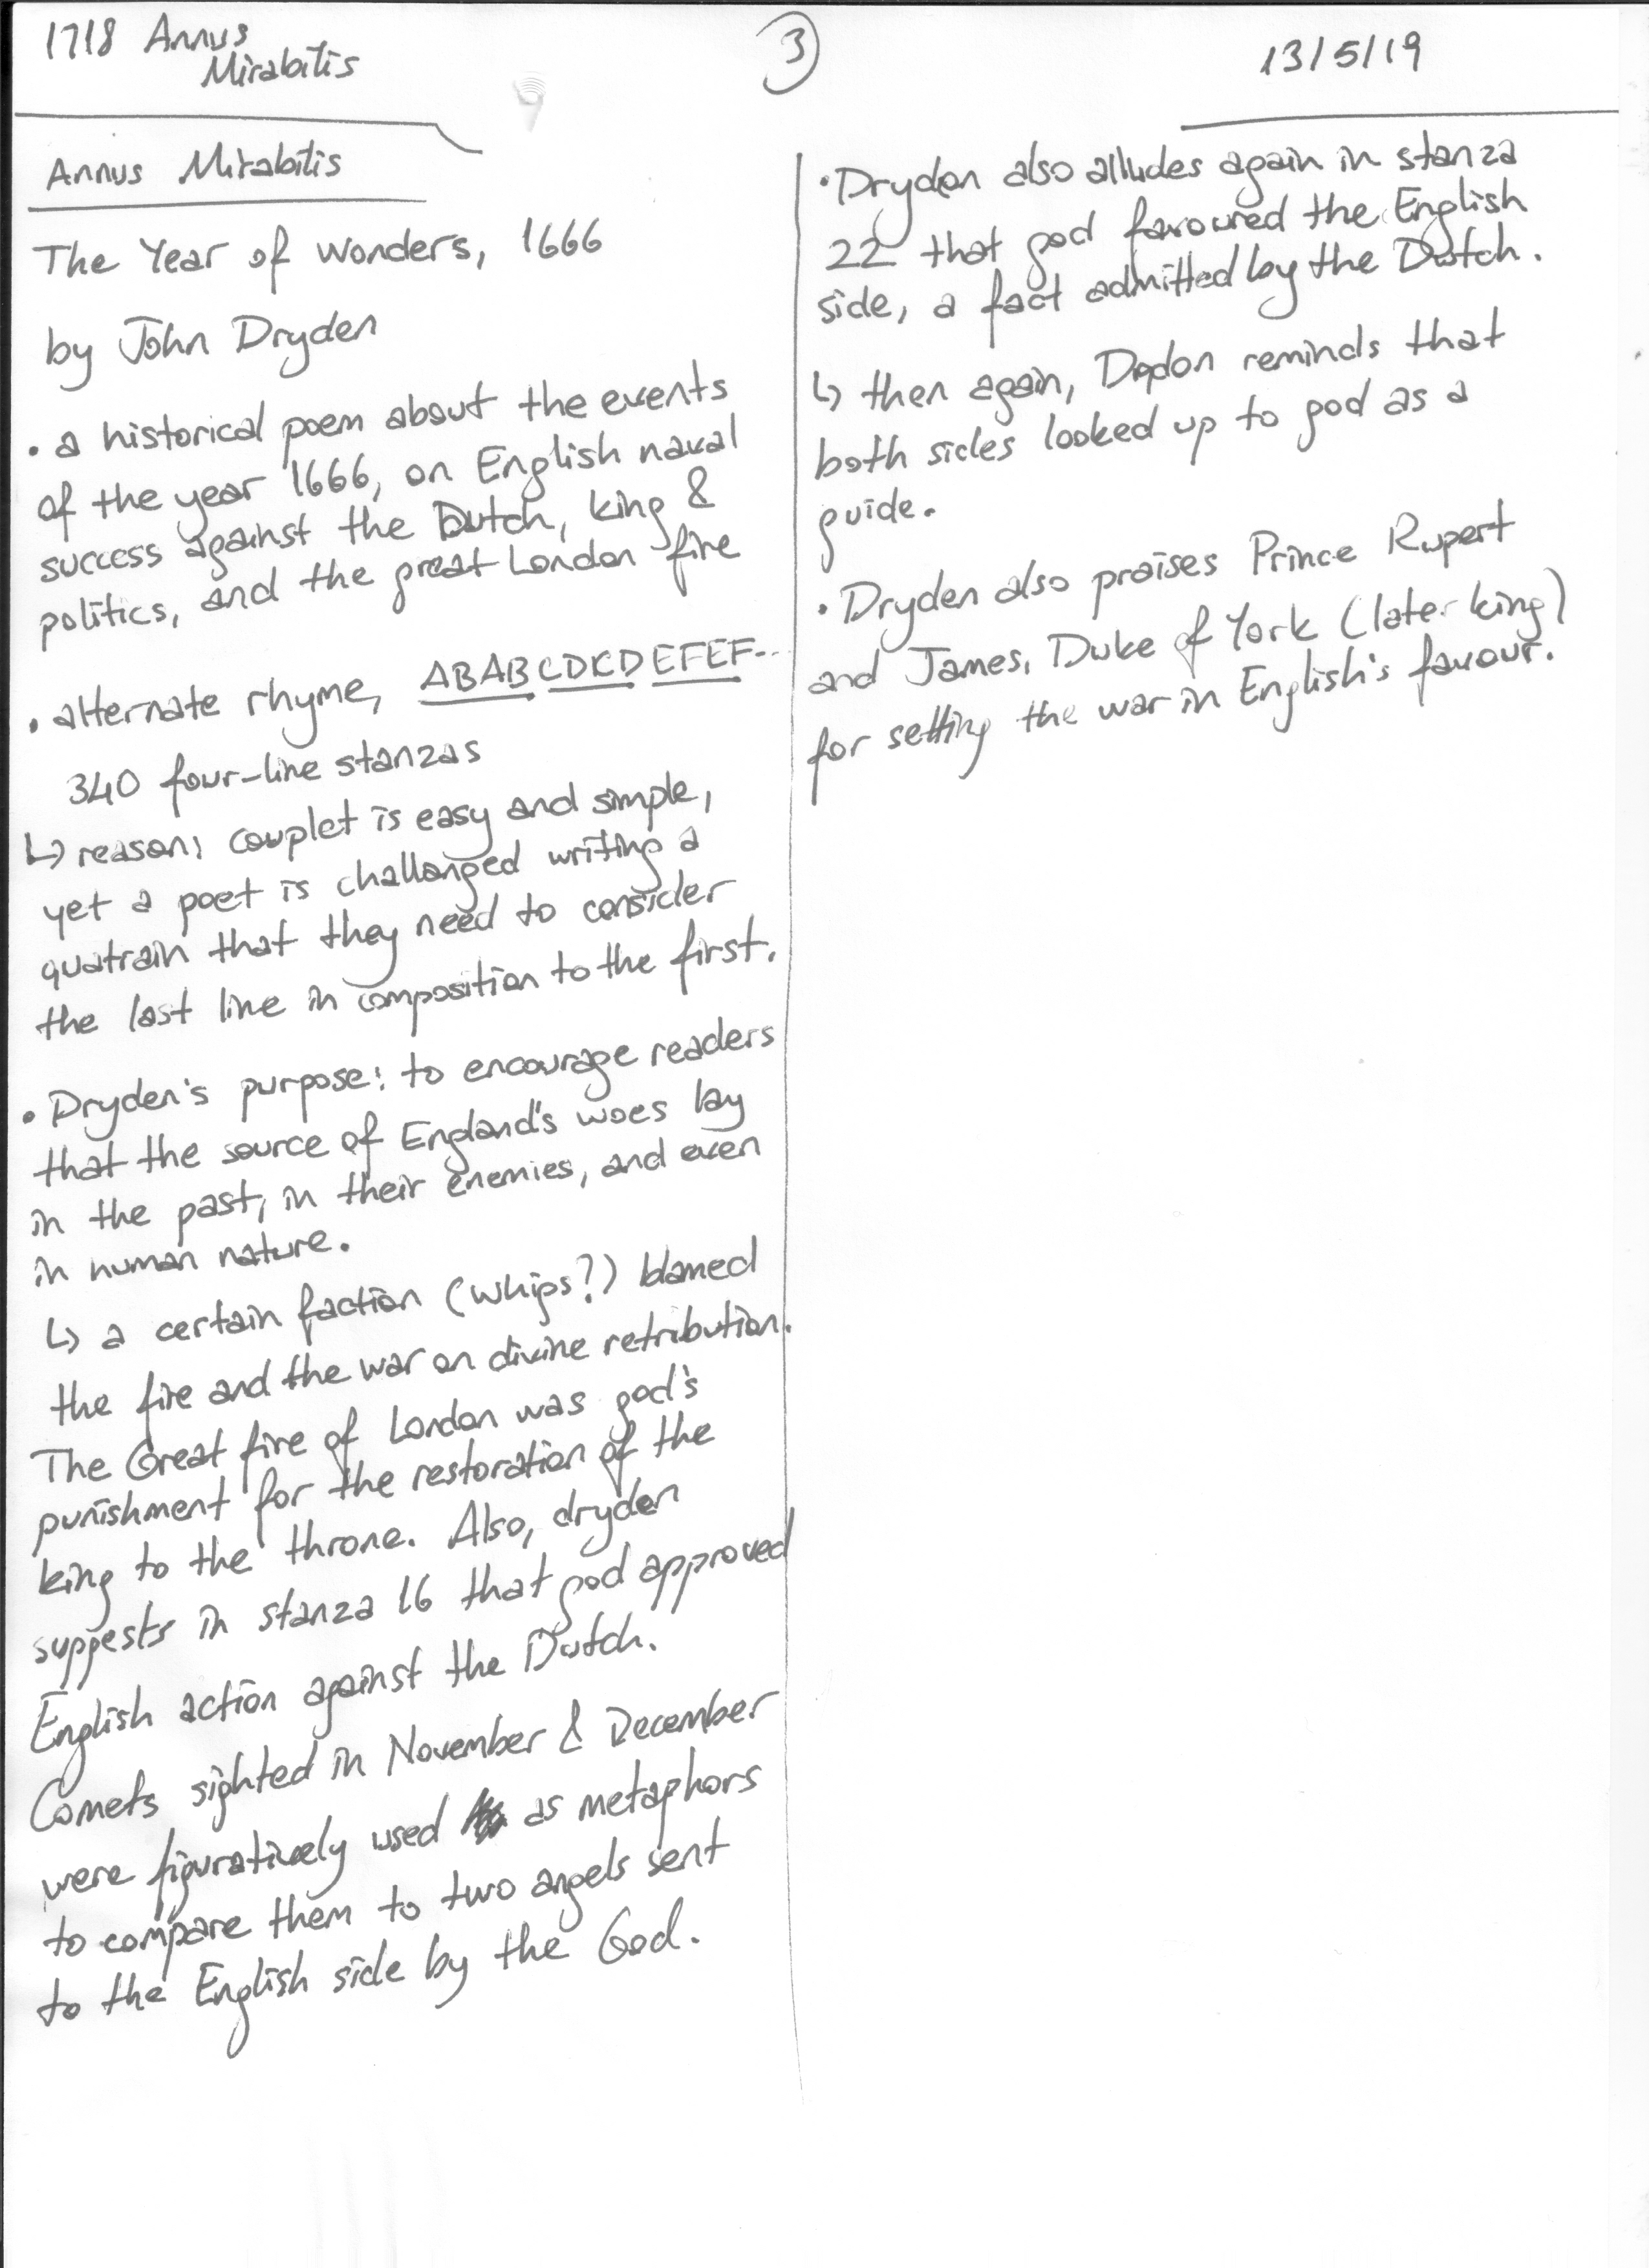 1718 Annus
Mirabilis
3
13/5/19
Annus Mirabilis
The Year of Wonders, 1666
by John Dryden
• a historical poem about the events
of the year 1666, on English naval
success against the Dutch, king &
politics, and the great London fire
• alternate rhyme, ABAB CDCD EFEF...
340 four-line stanzas
↳ reason: couplet is easy and simple,
yet a poet is challanged writing a
quatrain that they need to consider
the last line in composition to the first.
• Dryden's purpose: to encourage readers
that the source of England's woes lay
in the past, in their enemies, and even
in human nature.
↳ a certain faction (whigs?) blamed
the fire and the war on divine retribution.
The Great fire of London was god's
punishment for the restoration of the
king to the throne. Also, dryden
suggests in stanza 16 that god approved
English action against the Dutch.
Comets sighted in November & December
were figuratively used as metaphors
to compare them to two angels sent
to the English side by the God.
• Dryden also alludes again in stanza
22 that god favoured the English
side, a fact admitted by the Dutch.
↳ then again, Drydon reminds that
both sides looked up to god as a
guide.
• Dryden also praises Prince Rupert
and James, Duke of York (later king)
for setting the war in English's favour.